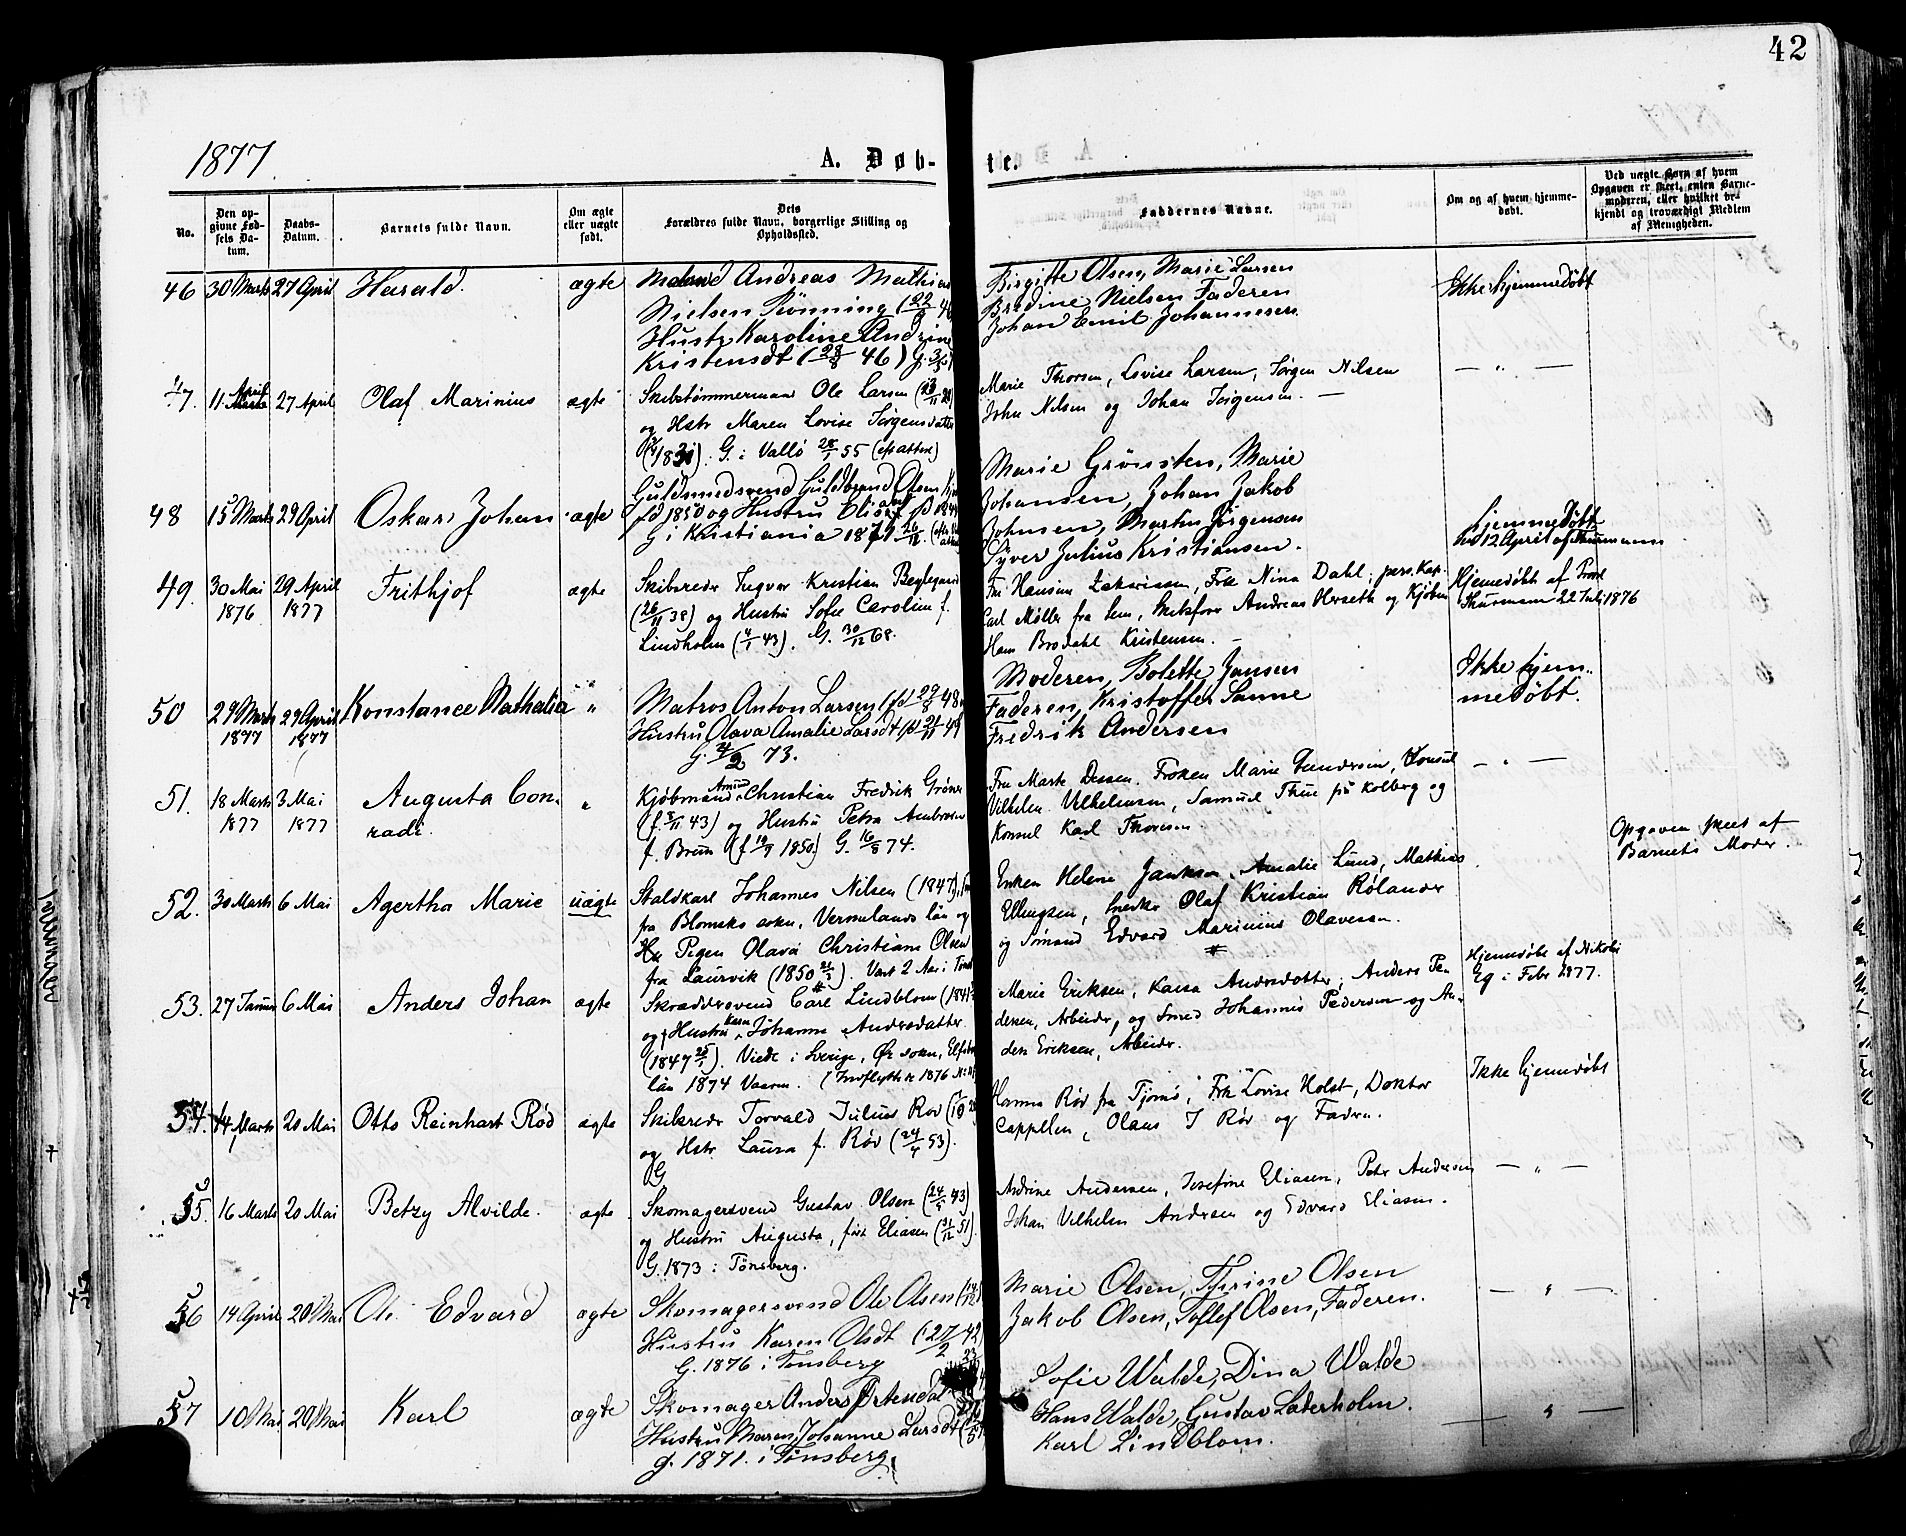 42
1877.
A. Døb-
te.
No.
Den op-
givne Fød-
sels Da-
tum.
Daabs-
Datum.
Barnets fulde Navn.
Om ægte
eller uægte
født.
Dets
Forældres fulde Navn, borgerlige Stilling og
Opholdssted.
Faddernes Navne.
Om og af hvem hjemme-
døbt.
Ved uægte Børn af hvem
Opgaven er skeet, enten Barne-
moderen, eller hvilket be-
kjendt og troværdigt Medlem
af Menigheden.
46 30 Marts 27 April Harald. ægte Andreas Mathias
Nielsen Rønning (22/
Hustr Karoline Andrine
Kristensdt (28/8 46) G.
Birgitte Olsen, Marie Larsen
Bredine Nielsen Faderen
Johan Emil Johannesen
Ikke hjemmedøbt
47. 11 April 27 April Olaf Marinius ægte Skibstømmermand Ole Larsen
og Hstr Maren Lovise Jørgensdatter
G. i Vallö 28/1 55 (efter attest)
Marie Thorsen, Lovise Larsen, Jørgen Nilsen
John Nilsen og Johan Jørgensen. —
— " —
48 15 Marts 29 April Oskar Johan ægte Guldsmedsvend Guldbrand Olsen
fd 1850 og Hustru
G i Kristiania
Marie Grönsten, Marie
Johansen, Johan Jakob
Johnsen, Martin Jörgensen
Syver Julius Kristiansen.
hjemmedøbt
12 April af Thurmann
49. 30 Mai
1876
29 April
1877
Frithjof ægte Skibsreder Ingvar Kristian Beglegaard
(26/11 38) og Hustru Sofie Caroline f.
Lindholm (4/1 43). G. 30/12 68.
Fru Hansine Zakariassen, Frk Nina Dahl, pers. Kap.
Carl Møller fra Sem, Skibsfører Andreas Herseth og Kjøbm
Hans Brodahl Kristensen. —
Hjemmedøbt af Provst
Thurmann 22 Juli 1876
50 29 Marts
1877
29 April
1877
Konstance Nathalia " Matros Anton Larsen fd 29/8 48
Hustru Olava Amalie Larsdt fd 21/11 49
G. 4/2 73.
Moderen, Bolette Jansen
Faderen, Kristoffer Sanne
Fredrik Andersen
Ikke hjem-
medøbt.
51. 18 Marts
1877
3 Mai
1877
Augusta Con-
radi.
" Kjøbmand Christian Fredrik Grøner
(f. 43) og Hustru Petra Ambrosia
f. Bruun (f 19/9 1850) G. 16/8 74.
Fru Marte Dessen, Frøken Marie Gundersen, Konsul
Vilhelm Vilhelmsen, Samuel Thue på Kolberg og
Konsul Karl Thoresen.
— " —
52. 30 Marts 6 Mai Agertha Marie uægte Staldkarl Johannes Nilsen (1847)
fra Blomskog sokn, Vermelands län og
Pigen Olava Christiane Olsen
fra Laurvik (1850 21/3). Vært 2 Aar i
Enken Helene Janksen, Amalie Lund, Mathias
Ellingsen, Snedker Olaf Kristian Rølander
og Sømand Edvard Marinius Olavesen.
Opgaven skeet af
Barnets Moder.
53. 27 Januar 6 Mai Anders Johan ægte Skræddersvend Carl Lindblom (1841
og Hustru Karin Johanna Andersdatter
(1847 25/1). Viede i Sverige, Ör sokn, Elfsborg
län 1874 Vaaren. (Indflytted 1876
Marie Eriksen, Kaisa Andersdotter, Anders Pe-
dersen, Arbeider, og Smed Johannes Pedersen og An-
ders Eriksen, Arbeider.
Hjemmedøbt af Nikolai
Eg i Febr 1877.
54. 14 Marts 20 Mai Otto Reinhart Röd ægte Skibsreder Torvald Julius Röd
og Hstr Laura f. Röd (24/4 53).
G
Hanna Röd fra Tjømö, Frk Lovise Holst, Doktor
Cappelen, Olaus J Röd og Faderen.
Ikke hjemmedøbt
55. 16 Marts 20 Mai Betzy Alvilde. ægte Skomagersvend Gustav Olsen (24/5 43)
og Hustru Augusta, født Eliasen (31/12 51).
G. 1873 i Tønsberg.
Andrine Andersen, Josefine Eliasen, Peter Andersen
Johan Vilhelm Andersen og Edvard Eliasen.
— " —
56 14 April 20 Mai Ole Edvard ægte Skomagersvend Ole Olsen
Hustru Karen Olsdt (27/2 42)
G. 1876 i Tønsberg
Marie Olsen, Thrine Olsen
Jakob Olsen, Tollef Olsen, Faderen.
— " —
57 10 Mai 20 Mai Karl ægte Skomager Anders Ørtendal
Hustru Maren Johanne Larsdt
g. 1871. i Tønsberg
Sofie Walde, Dina Walde
Hans Walde, Gustav Laderholm.
Karl Lindblom.
— " —